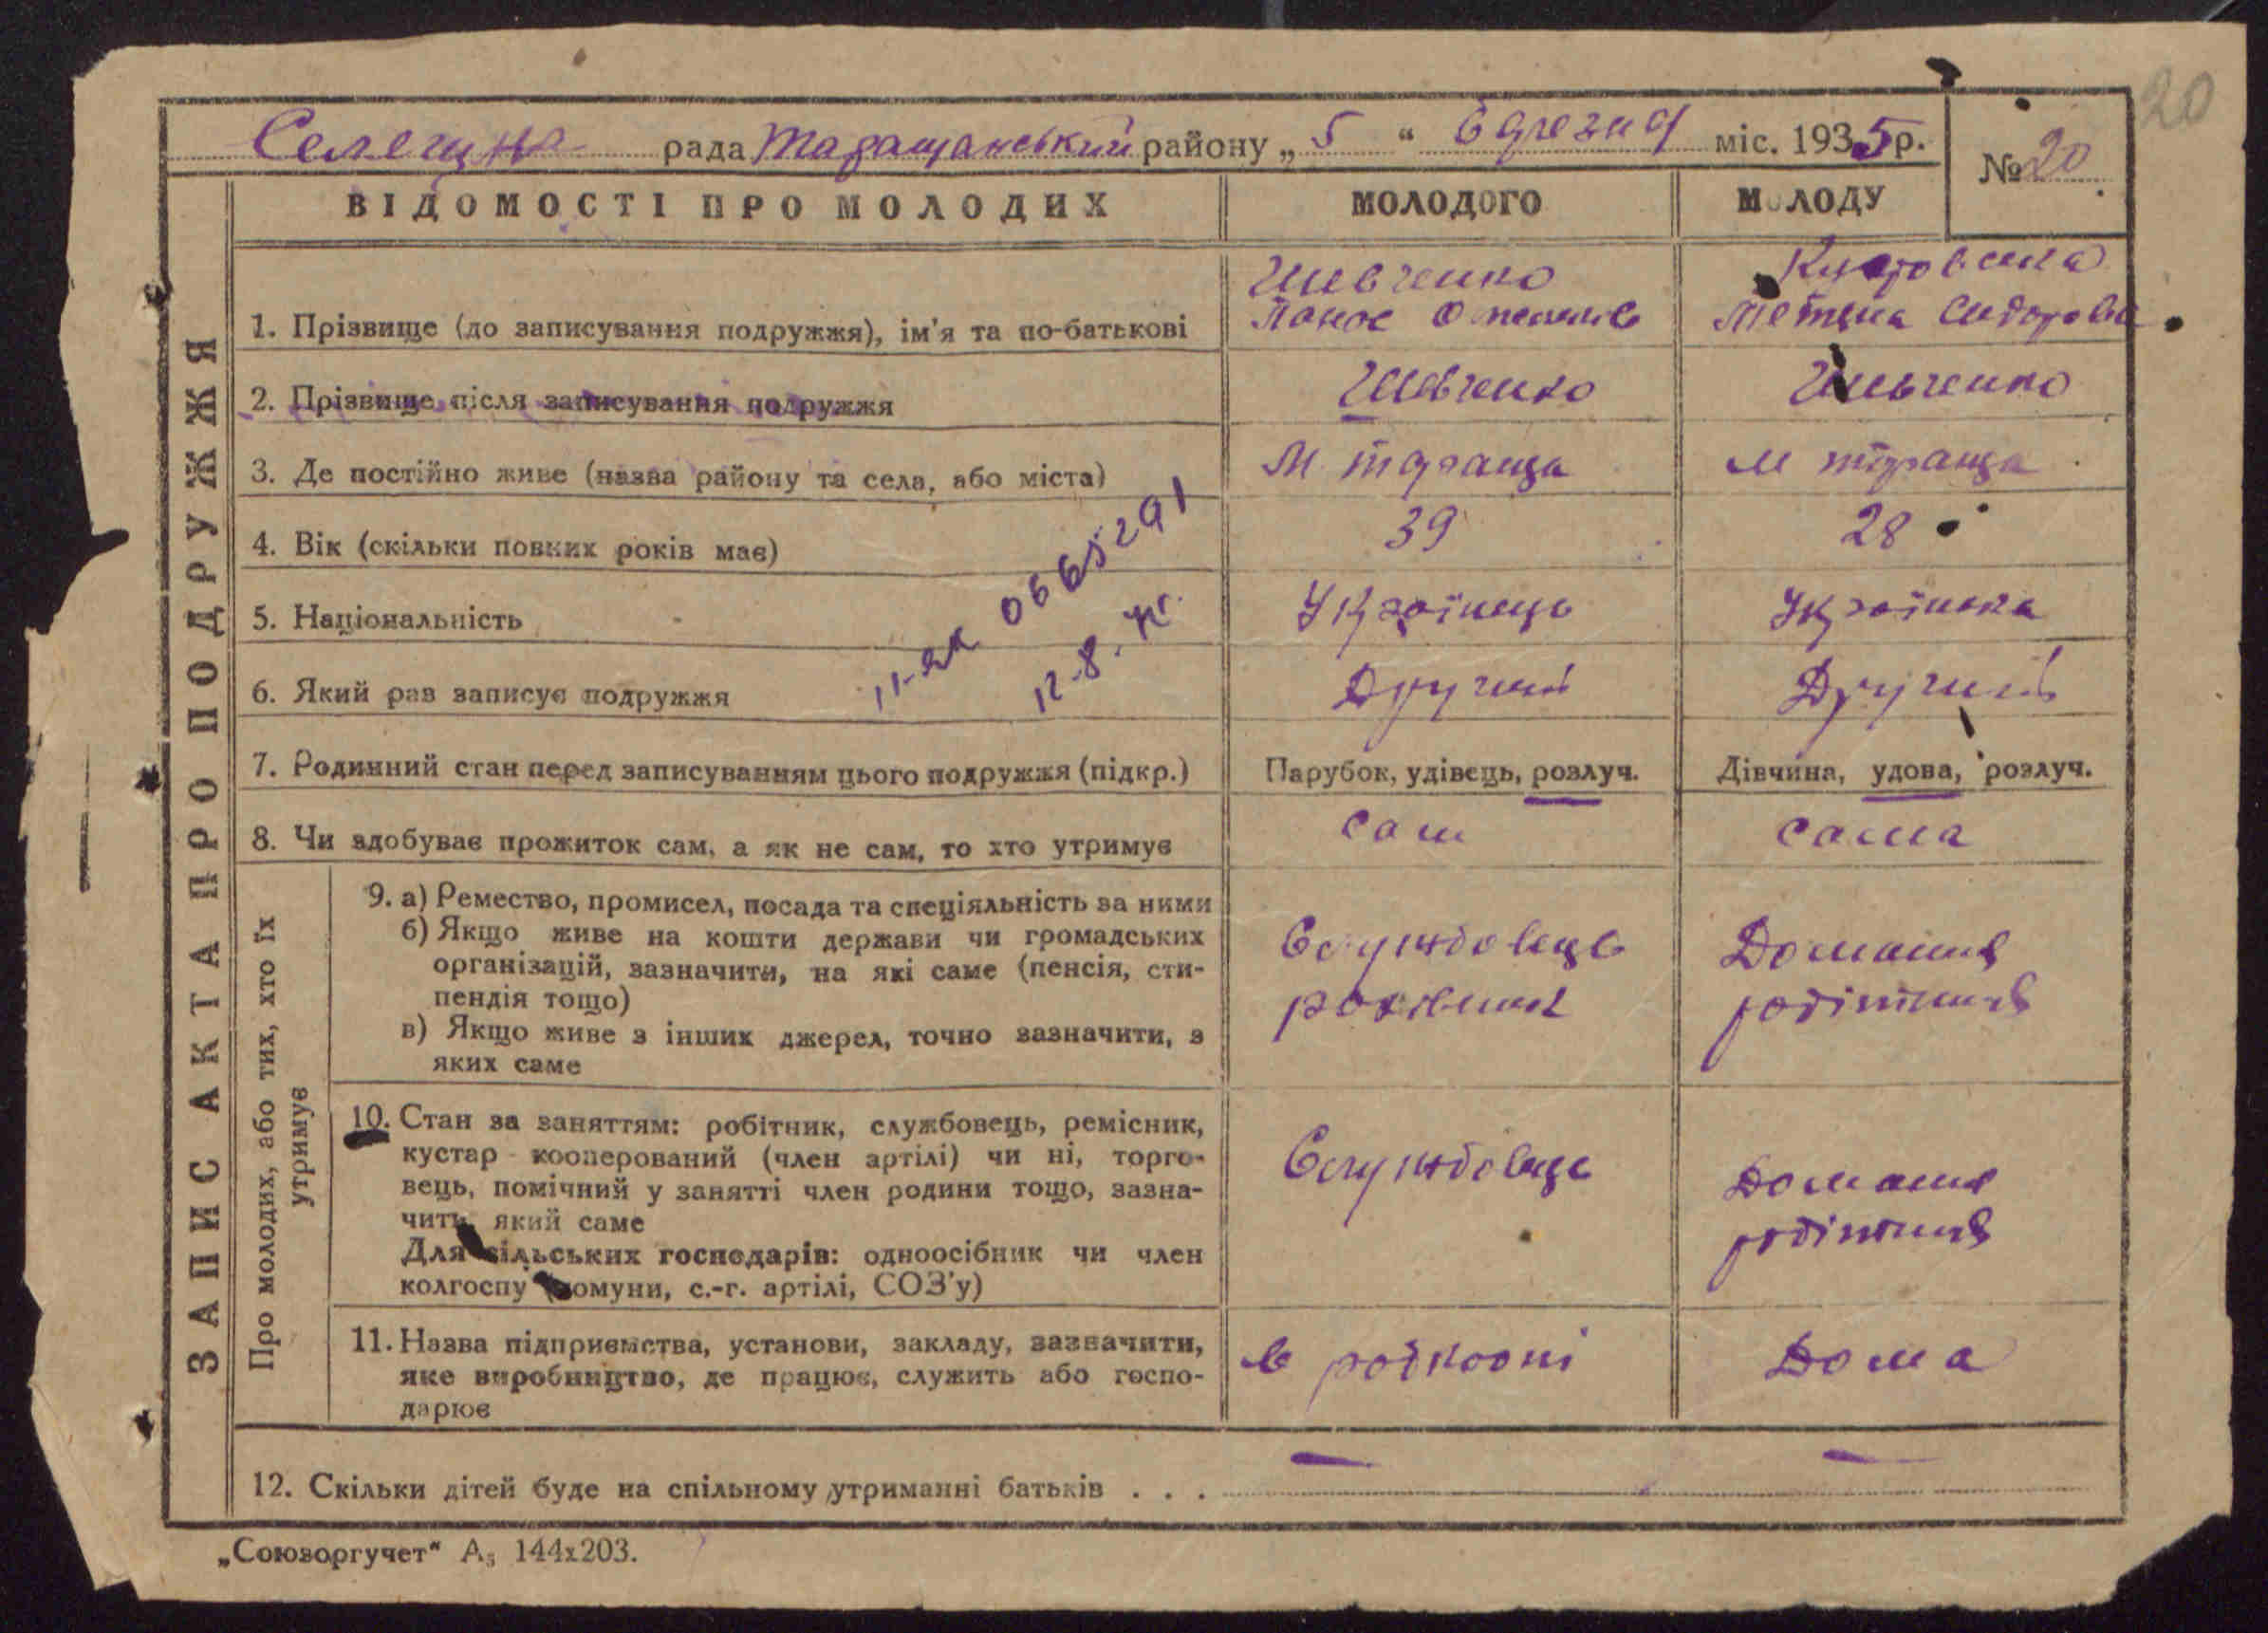 20
Селещна рада Таращанський району „ 5 “ березня міс. 1935 р.
№ 20
ВІДОМОСТІ ПРО МОЛОДИХ
МОЛОДОГО
МОЛОДУ
ЗАПИС АКТА ПРО ПОДРУЖЖЯ
1. Прізвище (до записування подружжя), ім'я та по-батькові
Шевченко
Панос
Тетяна Сидоровна
2. Прізвище після записування подружжя
Шевченко
Шевченко
3. Де постійно живе (назва району та села, або міста)
М Тараща
м Тараща
4. Вік (скільки повних років має)
39
28
5. Національність
Українець
Українка
6. Який раз записує подружжя
Другий
Другий
11-як 0665291
12-8.
7. Родинний стан перед записуванням цього подружжя (підкр.)
Парубок, удівець, розлуч.
Дівчина, удова, розлуч.
8. Чи здобуває прожиток сам, а як не сам, то хто утримує
сам
сама
Про молодих, або тих, хто їх
утримує
9. а) Ремество, промисел, посада та спеціяльність за ними
б) Якщо живе на кошти держави чи громадських
організацій, зазначити, на які саме (пенсія, сти-
пендія тощо)
в) Якщо живе з інших джерел, точно зазначити, з
яких саме
Служдовець
Домашня
робітниця
10. Стан за заняттям: робітник, службовець, ремісник,
кустар кооперований (член артілі) чи ні, торго-
вець, помічний у занятті член родини тощо, зазна-
чити, який саме
Для сільських господарів: одноосібник чи член
колгоспу (комуни, с.-г. артілі, СОЗ'у)
Служдовець
Домашня
робітниця
11. Назва підприємства, установи, закладу, зазначити,
яке виробництво, де працює, служить або госпо-
дарює
в
Дома
12. Скільки дітей буде на спільному утриманні батьків . . .
— —
„Союзоргучет“ А₅ 144х203.